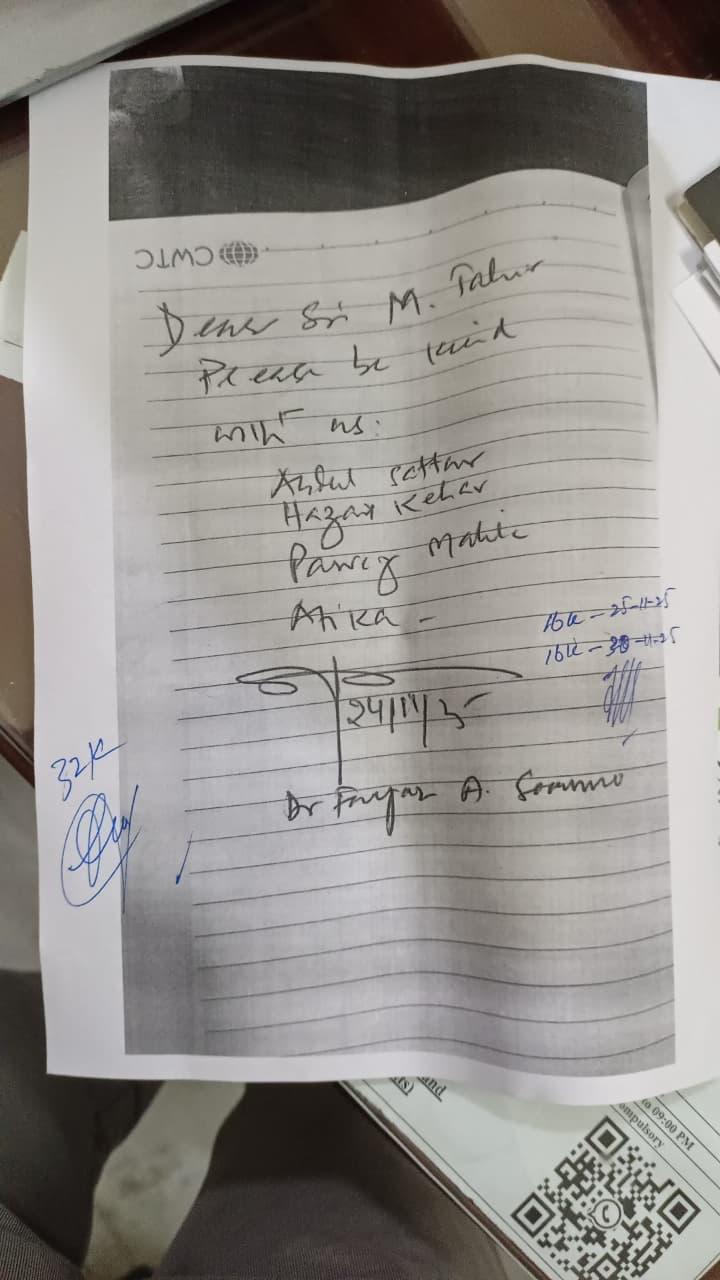 CWTC
Dear Sir M. Tahir
Please be kind
with us:
Abdul Sattar
Hazar Kehar
Parvez
Atika -
16k - 25-11-25
16k - 30-11-25
24/11/25
32K
Dr Fayaz A. Soomro
and
to 09:00 PM
ompulsory